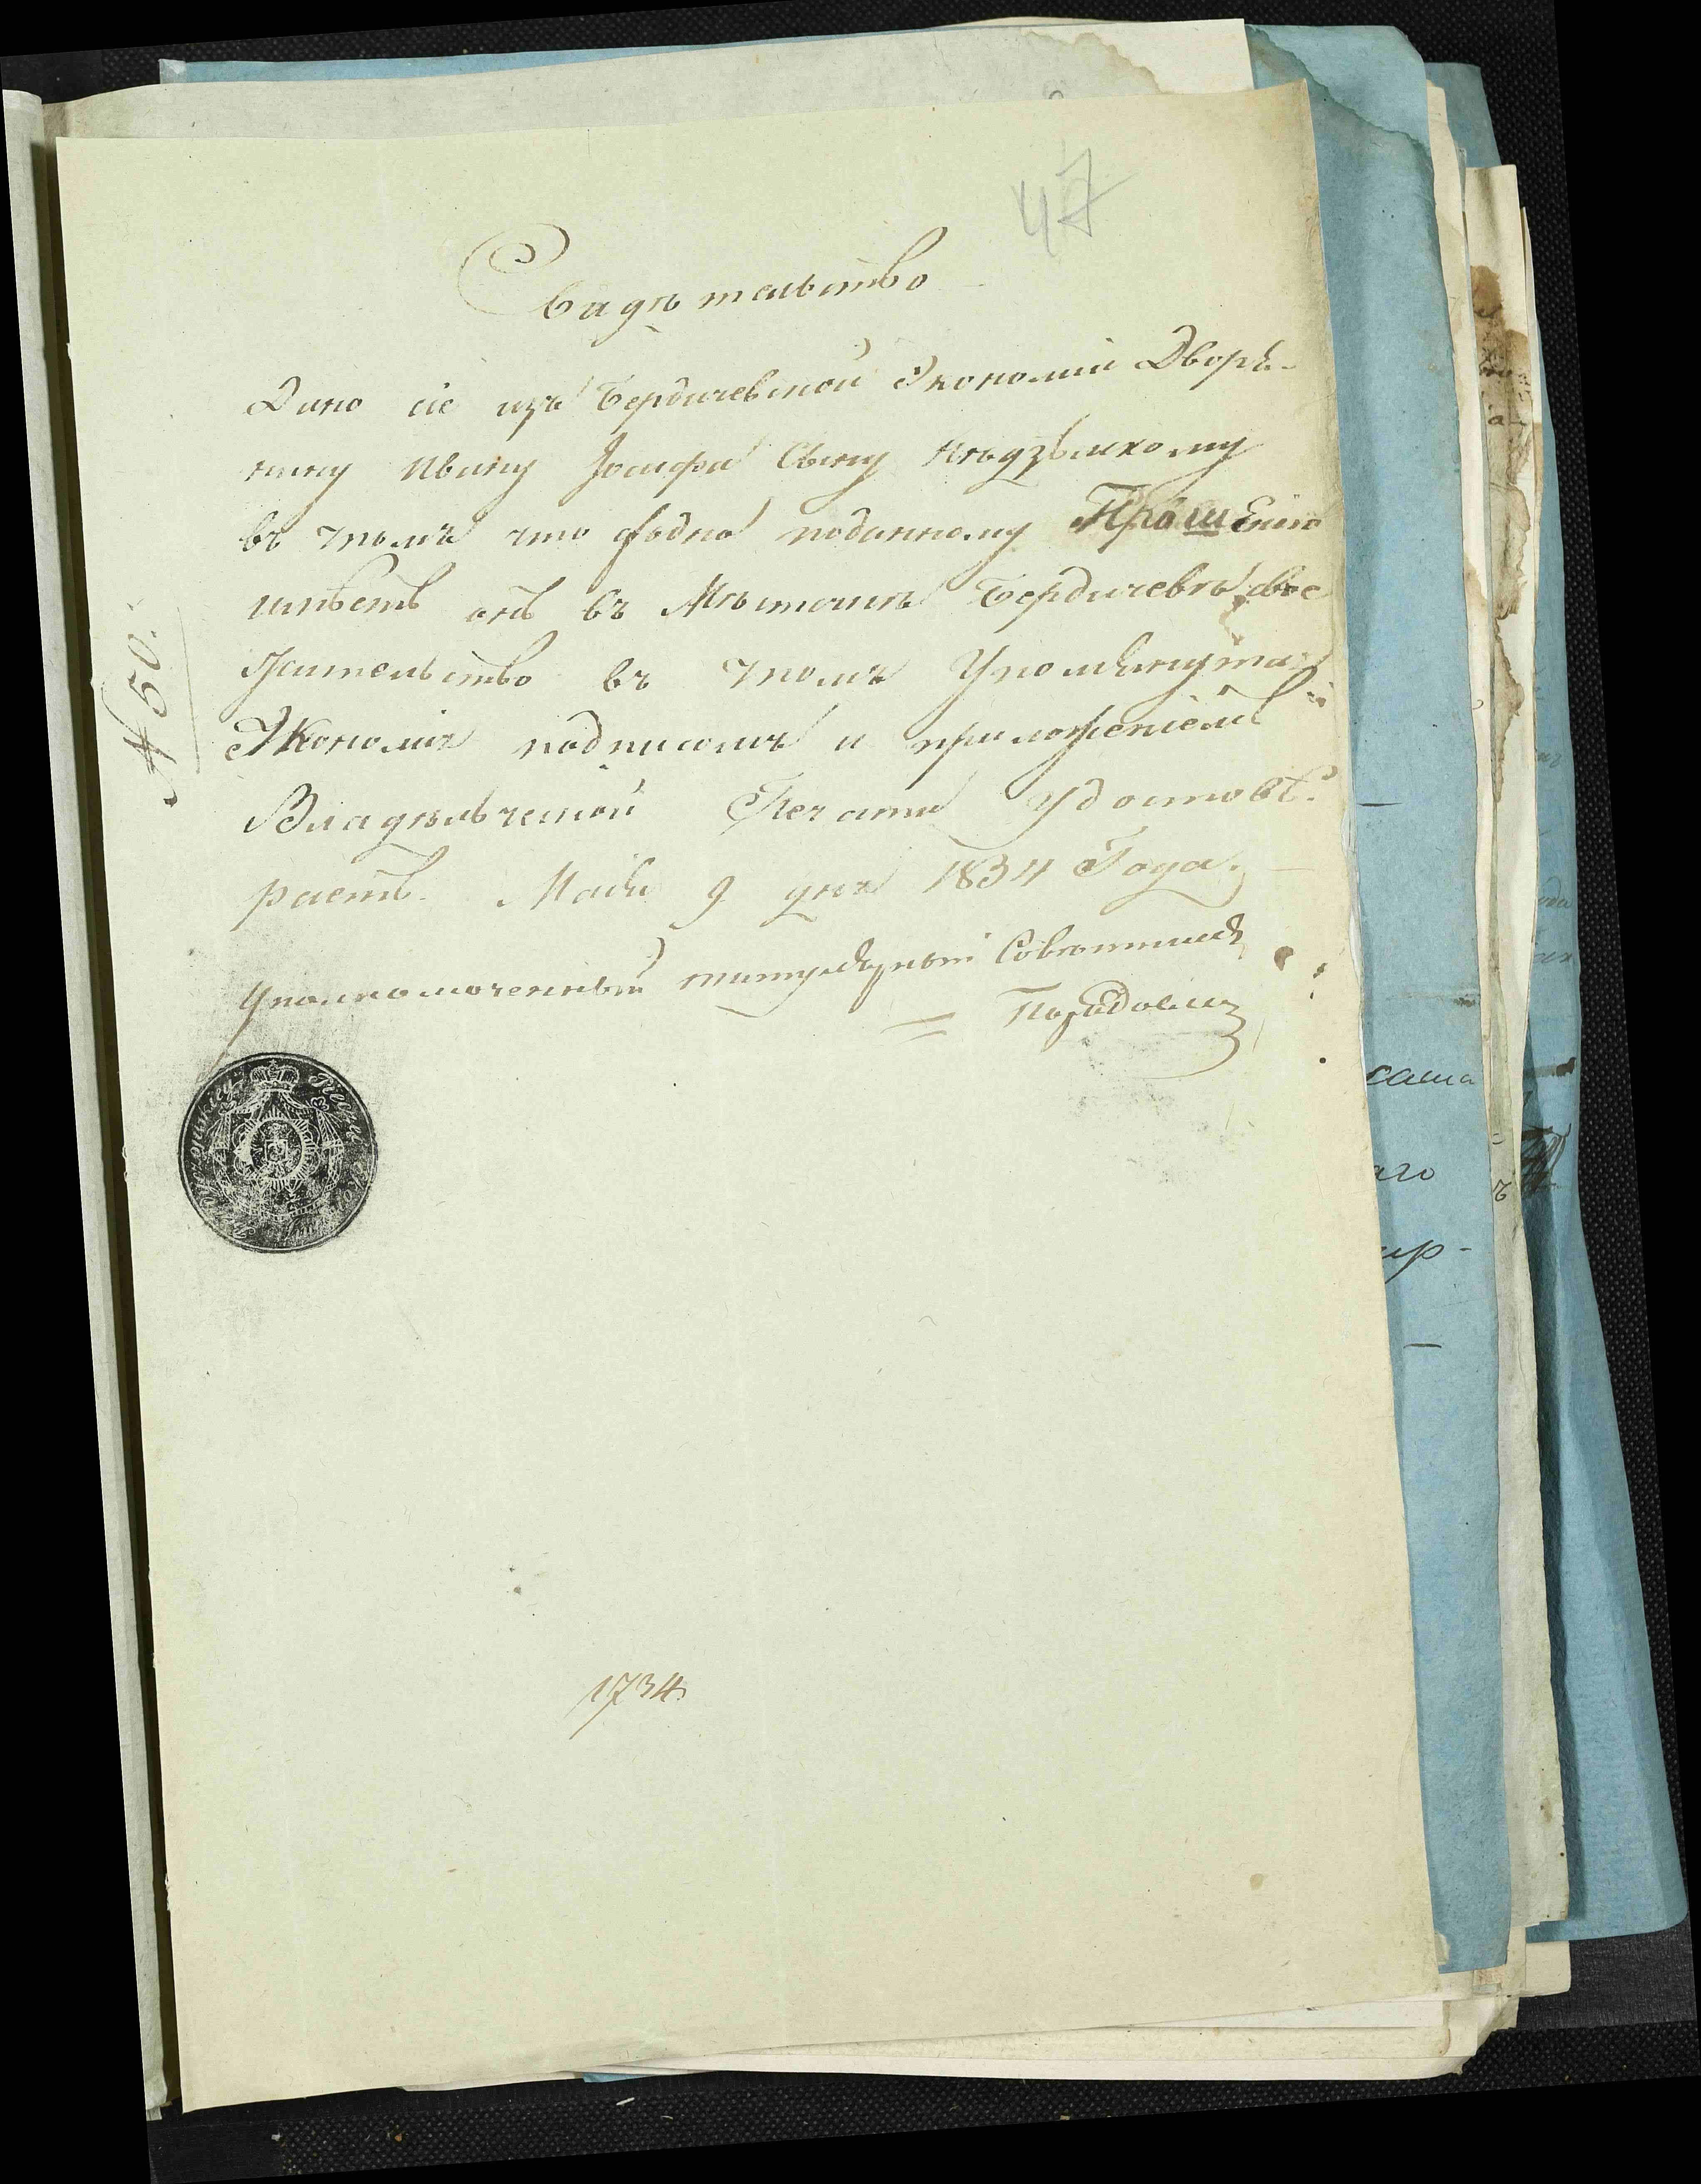 47
Свидѣтельство
Дано сіе изъ Бердичевской Экономіи Дворя-
нину Ивану Іосифа Сыну
въ томъ что поданному Прошенію
имѣетъ онъ въ Мѣстечкѣ Бердичевѣ свое
жительство въ томъ Упомянутая
Экономія подписомъ и приложеніемъ
Владѣльческой Печати Удостовѣ-
раетъ. Маія 9 дня 1834 Года.
Уполномоченный титулярный Совѣтникъ
№ 50.
1734
саша
аго
ир-